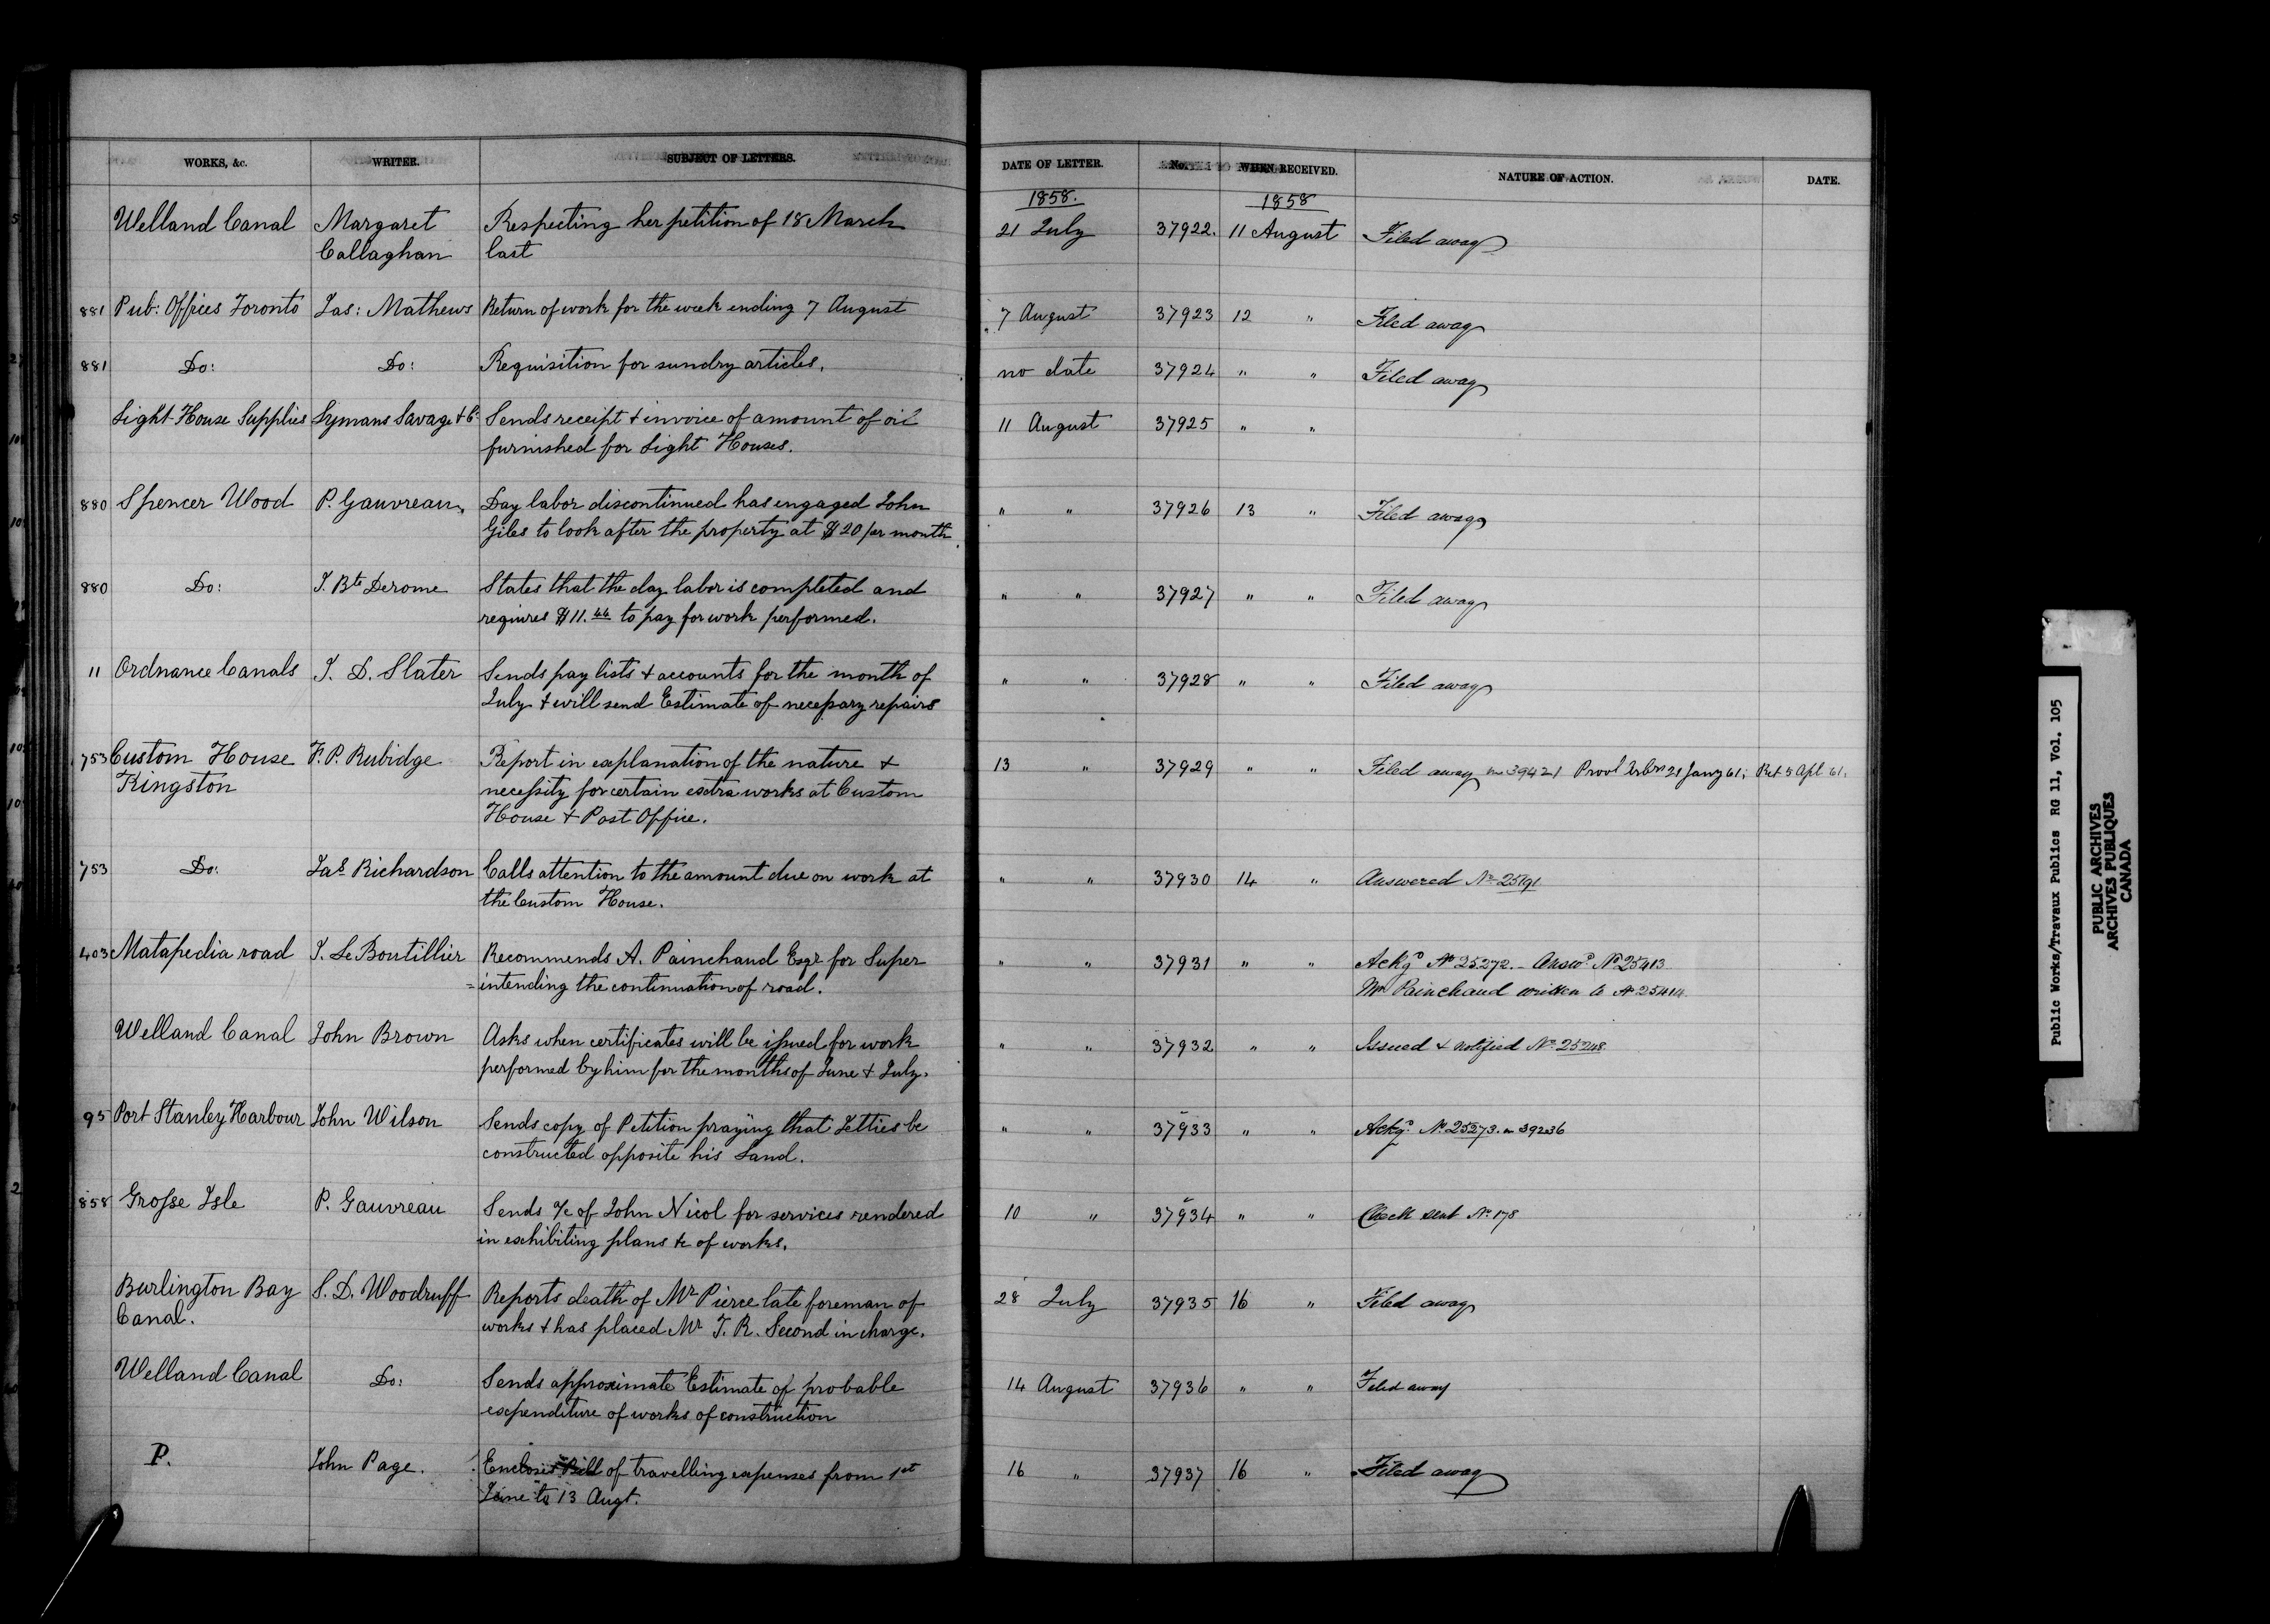 WORKS, &c. WRITER. SUBJECT OF LETTERS. DATE OF LETTER. No. WHEN RECEIVED. NATURE OF ACTION. DATE.
1858. 1858
Welland Canal Margaret Respecting her petition of 18 March 21 July 37922. 11 August Filed away
Callaghan last
881 Pub: Offices Toronto Jas: Mathews Return of work for the week ending 7 August 7 August 37923 12 " Filed away
881 Do: Do: Requisition for sundry articles. no date 37924 " " Filed away
Light House Supplies Lymans Savage & Co: Sends receipt & invoice of amount of oil 11 August 37925 " "
furnished for Light Houses.
880 Spencer Wood P. Gauvreau Day labor discontinued has engaged John " " 37926 13 " Filed away
Giles to look after the property at $20 per month
880 Do: J. Bte Derome States that the day labor is completed and " " 37927 " " Filed away
requires $11.44 to pay for work performed.
11 Ordnance Canals J. D. Slater Sends pay lists & accounts for the month of " " 37928 " " Filed away
July & will send Estimate of necessary repairs
753 Custom House F. P. Rubidge Report in explanation of the nature & 13 " 37929 " " Filed away on 39421 Provl Arbrs 21 Jany 61; Ret 5 Apl 61.
Kingston necessity for certain extra works at Custom
House & Post Office.
753 Do: Jas Richardson Calls attention to the amount due on work at " " 37930 14 " Answered No 25191
the Custom House.
403 Matapedia road J. Le Boutillier Recommends A. Painchaud Esqr for Super " " 37931 " " Ackgd No 25272. - Answd No 25413
=intending the continuation of road. Mr Painchaud written to No 25414
Welland Canal John Brown Asks when certificates will be issued for work " " 37932 " " Issued & notified No 25248
performed by him for the months of June & July.
95 Port Stanley Harbour John Wilson Sends copy of Petition praying that Jetties be " " 37933 " " Ackgd No 25273. on 39236
constructed opposite his Land.
858 Grosse Isle P. Gauvreau Sends a/c of John Nicol for services rendered 10 " 37934 " " Check sent No 178
in exhibiting plans &c of works.
Burlington Bay S. D. Woodruff Reports death of Mr Pierce late foreman of 28 July 37935 16 " Filed away
Canal. works & has placed Mr T. R. Second in charge.
Welland Canal Do: Sends approximate Estimate of probable 14 August 37936 " " Filed away
expenditure of works of construction
P. John Page. Encloses Bill of travelling expenses from 1st 16 " 37937 16 " Filed away
June to 13 Augt.
Public Works/Travaux Publics RG 11, Vol. 105
PUBLIC ARCHIVES
ARCHIVES PUBLIQUES
CANADA